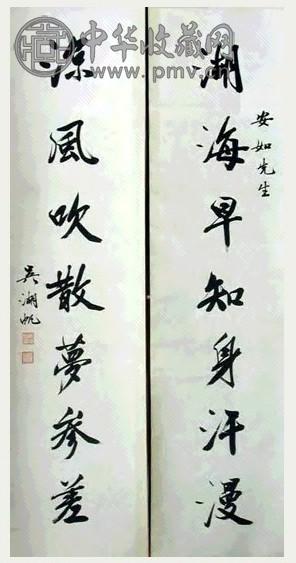 中华收藏网
www.pmv.cn
安如先生
湖海早知身汗漫
凉風吹散夢參差
吳湖帆